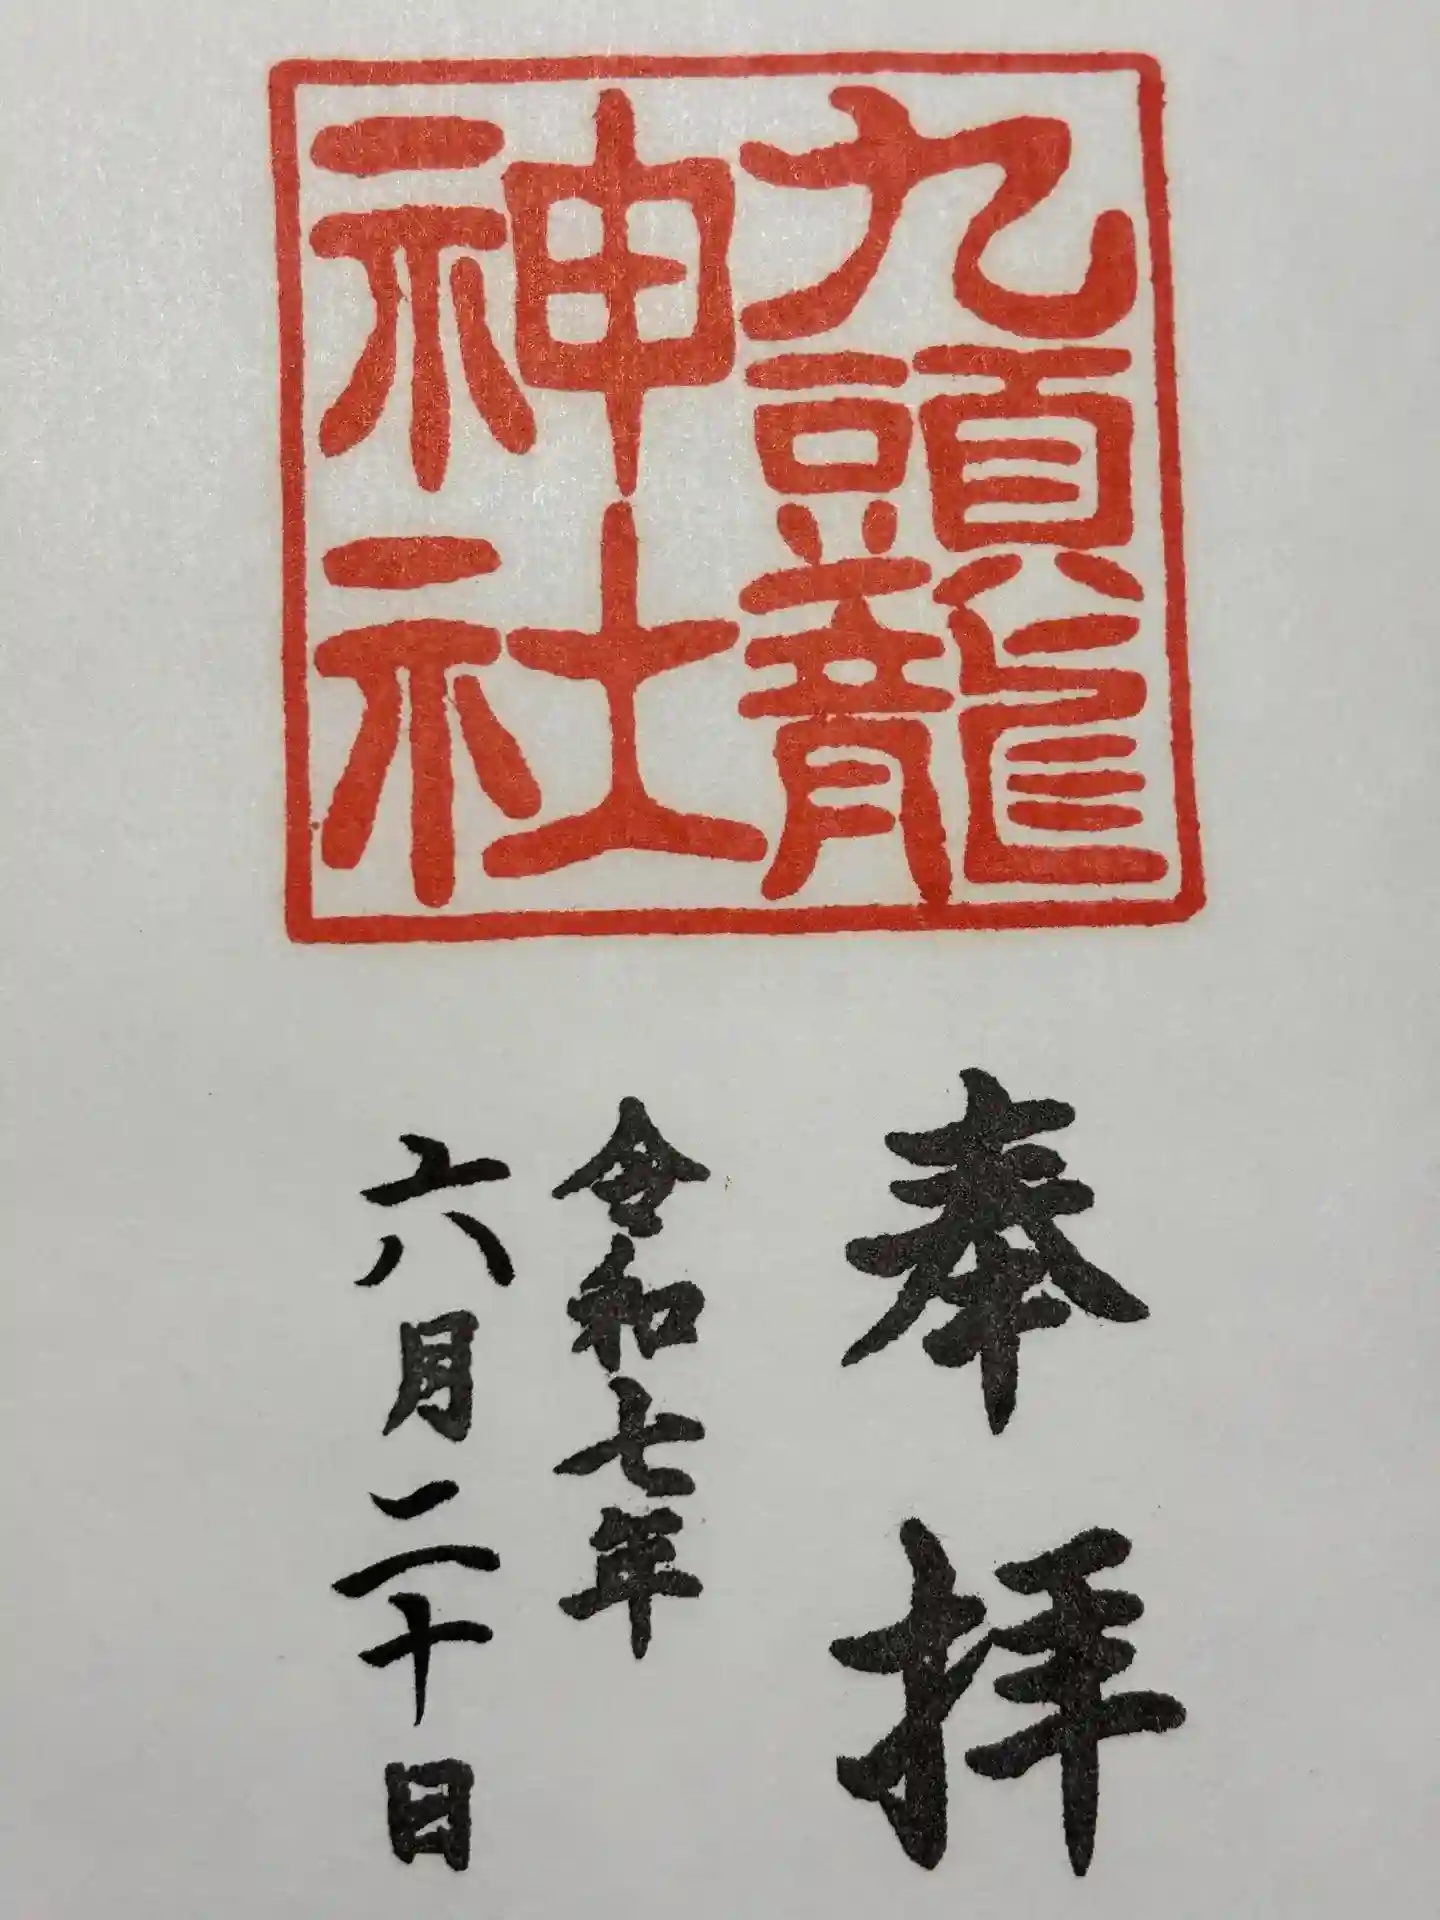 九頭龍
神社
奉拝
令和七年
六月二十日